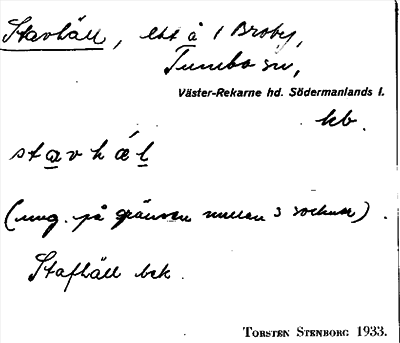 Stavhäll, ett å 1 Broby,
Tumbo sn,
Väster-Rekarne hd. Södermanlands l.
kb.
stavhäl
(ung. på gränsen mellan 3 socknar).
Stafhäll bek.
TORSTEN STENBORG 1933.